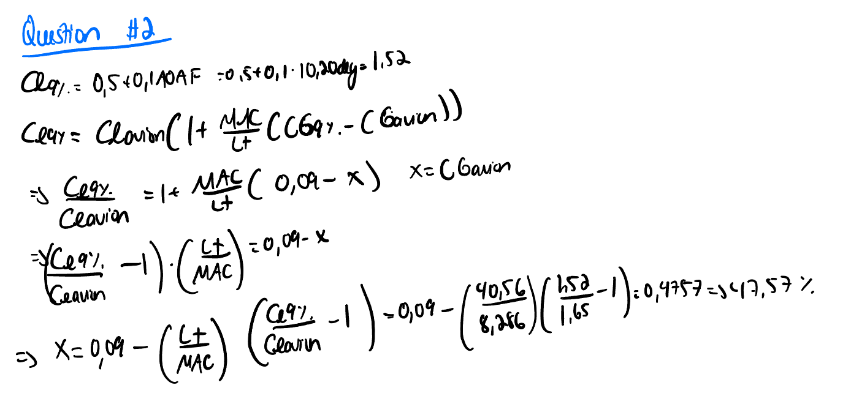 Question #2
Ceq% = 0,5+0,1 AOAF = 0,5+0,1·10,20deg = 1,52
Ceq% = Cl avion (1 + MAC/Lt (CGq%. - CGavion))
=> Ceq%/Clavion = 1 + MAC/Lt (0,09 - x) x = CGavion
=> (Ceq%/Cavion - 1) · (Lt/MAC) = 0,09 - x
=> x = 0,09 - (Lt/MAC) (Ceq%/Clavion - 1) = 0,09 - (40,56/8,286) (1,52/1,65 - 1) = 0,4757 => 47,57 %